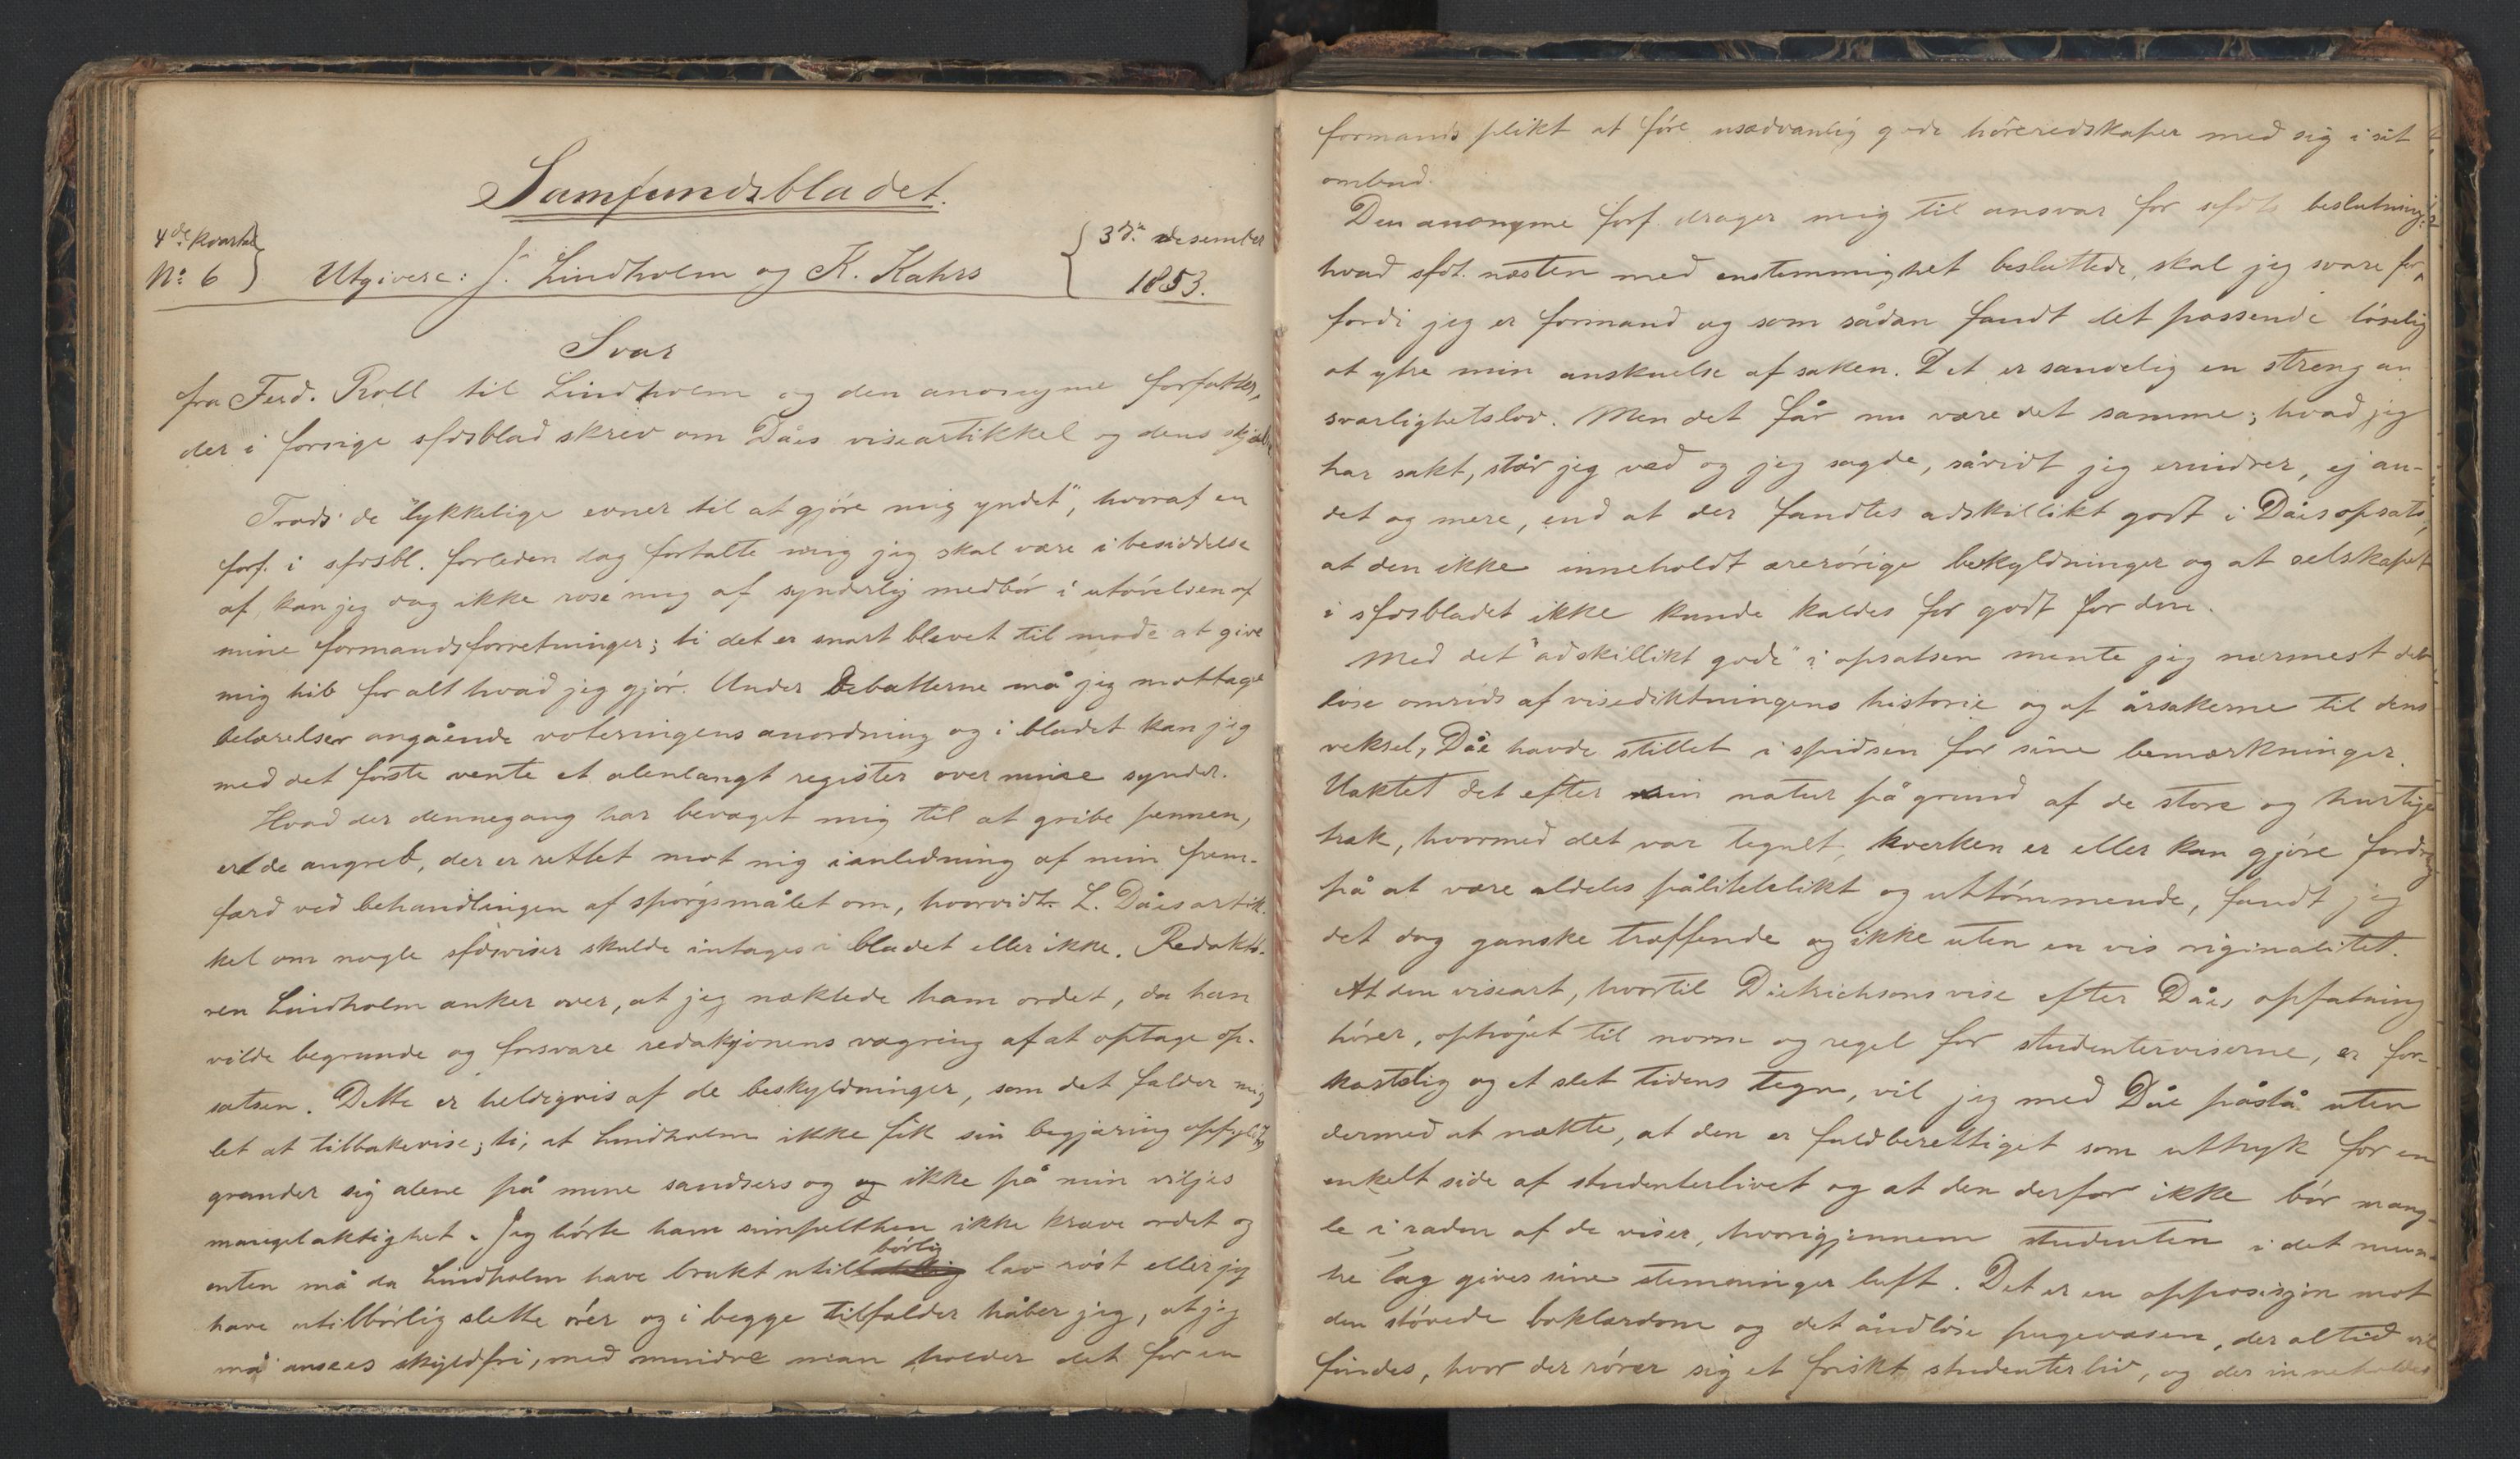 Samfundsbladet.
4de kvartal
No: 6
Utgivere: J. Lindholm og K. Kahrs
3dj. desember
1853.
Svar
fra Ferd. Roll til Lindholm og den anonyme forfatter,
der i forrige sfdsblad skrev om Dåes viseartikkel og dens skjæbne
Trods de "lykkelige evner til at gjöre mig yndet", hvoraf en
forf. i sfdsbl. forleden dag fortalte mig jeg skal være i besiddelse
af, kan jeg dog ikke rose mig af synderlig medbör i utövelsen af
mine formandsforretninger; ti det er snart blevet til mode at give
mig hib for alt hvad jeg gjör. Under Debatterne må jeg mottage
belærelser angående voteringens anordning og i bladet kan jeg
med det förste vente et alenlangt register over mine synder.
Hvad der dennegang har bevæget mig til at gribe pennen,
er de angreb, der er rettet mot mig i anledning af min frem-
færd ved behandlingen af spörgsmålet om, hvorvidt L. Dåes artik-
kel om nogle sfdsviser skulde intages i bladet eller ikke. Redaktö-
ren Lindholm anker over, at jeg næktede ham ordet, da han
vilde begrunde og forsvare redaksjonens vægring af at optage op-
satsen. Dette er heldigvis af de beskyldninger, som det falder mig
let at tilbakevise; ti, at Lindholm ikke fik sin begjæring opfyldt,
grunder sig alene på mine sandsers og og ikke på min viljes
mangelaktighet. Jeg hörte ham simpelthen ikke kræve ordet og
enten må da Lindholm have brukt utilbörlig lav röst eller jeg
have utilbörlig slette örer og i begge tilfælder håber jeg, at jeg
må ansees skyldfri, med mindre man holder det for en
formands plikt at före usædvanlig gode höreredskaper med sig i sit
ombud.
Den anonyme forf. drager mig til ansvar for sfdts beslutning:
hvad sfdt. næsten med enstemmighet besluttede, skal jeg svare for,
fordi jeg er formand og som sådan fandt det passende löselig
at ytre min anskuelse af saken. Det er sandelig en streng an
svarlighetslov. Men det får nu være det samme; hvad jeg
har sakt, står jeg ved og jeg sagde, såvidt jeg erindrer, ej an-
det og mere, end at der fandtes adskillikt godt i Dåes opsats,
at den ikke inneholdt ærerörige beskyldninger og at selskapet
i sfdsbladet ikke kunde kaldes for godt for den.
Med det "adskillikt gode" i opsatsen mente jeg nærmest det
löse omrids af visediktningens historie og af årsakerne til dens
veksel, Dåe havde stillet i spidsen for sine bemærkninger.
Uaktet det efter sin natur på grund af de store og hurtige
træk, hvormed det var tegnet, hverken er eller kan gjöre fordring
på at være aldeles pålitelikt og uttömmende, fandt jeg
det dog ganske træffende og ikke uten en vis originalitet.
At den viseart, hvortil Dietrichsons vise efter Dåes opfatning
hörer, ophöjet til norm og regel for studenterviserne, er for-
kastelig og et slet tidens tegn, vil jeg med Dåe påstå uten
dermed at nekte, at den er fuldberettiget som uttryk for en
enkelt side af studenterlivet og at den derfor ikke bör mang-
le i raden af de viser, hvorigjennem studenten i det mun-
tre lag giver sine stemninger luft. Det er en opposisjon mot
den stövede boklærdom og det åndlöse pugevæsen, der altid vil
findes, hvor der rörer sig et friskt studenterliv, og der inneholdes